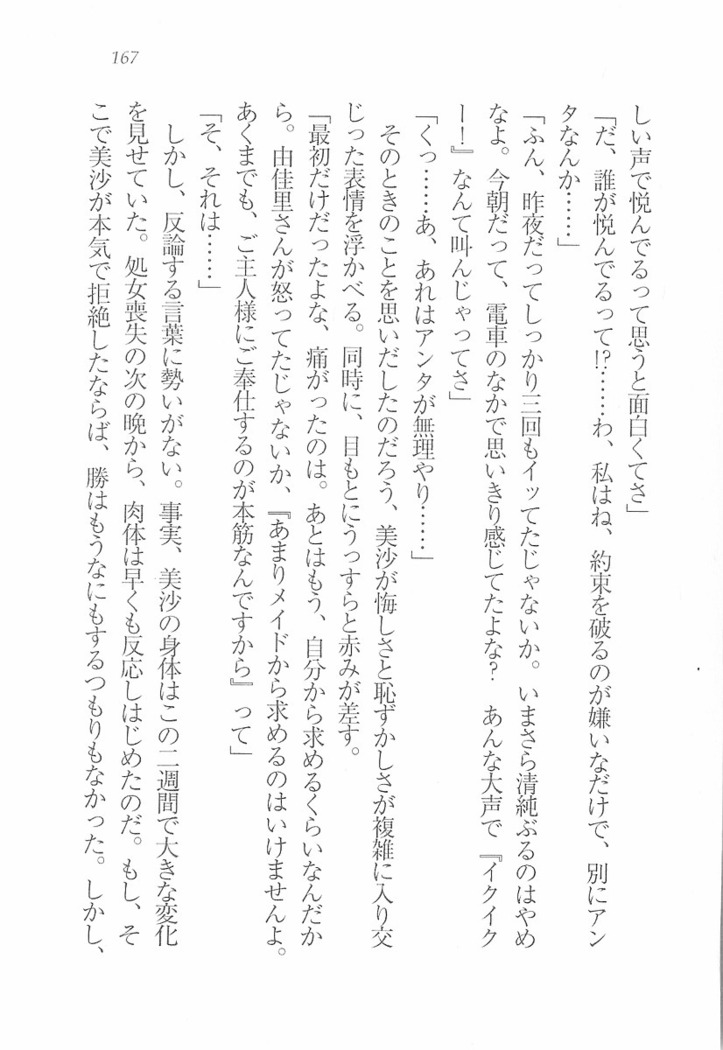 167
しい声で悦んでるって思うと面白くてさ」
「だ、誰が悦んでるって!?……わ、私はね、約束を破るのが嫌いなだけで、別にアン
タなんか……」
「ふん、昨夜だってしっかり三回もイッてたじゃないか。いまさら清純ぶるのはやめ
なよ。今朝だって、電車のなかで思いきり感じてたよな?　あんな大声で『イクイク
ー!』なんて叫んじゃってさ」
「くっ……あ、あれはアンタが無理やり……」
そのときのことを思いだしたのだろう、美沙が悔しさと恥ずかしさが複雑に入り交
じった表情を浮かべる。同時に、目もとにうっすらと赤みが差す。
「最初だけだったよな、痛がったのは。あとはもう、自分から求めるくらいなんだか
ら。由佳里さんが怒ってたじゃないか、『あまりメイドから求めるのはいけませんよ。
あくまでも、ご主人様にご奉仕するのが本筋なんですから』って」
「そ、それは……」
しかし、反論する言葉に勢いがない。事実、美沙の身体はこの二週間で大きな変化
を見せていた。処女喪失の次の晩から、肉体は早くも反応しはじめたのだ。もし、そ
こで美沙が本気で拒絶したならば、勝はもうなにもするつもりもなかった。しかし、